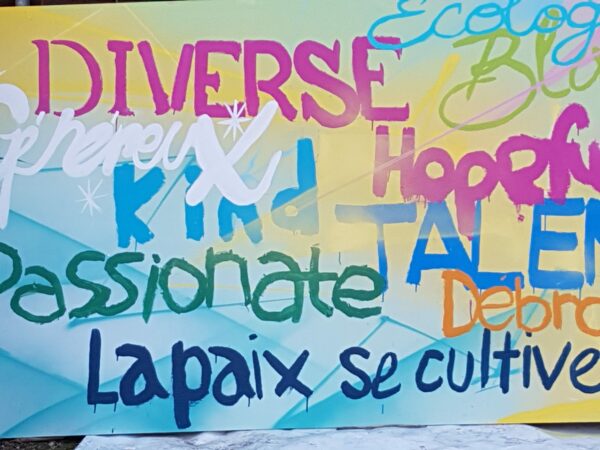 Écolog
DIVERSE
Généreux
Hopefu
Kind
TALEN
Passionate
Débro
La paix se cultive